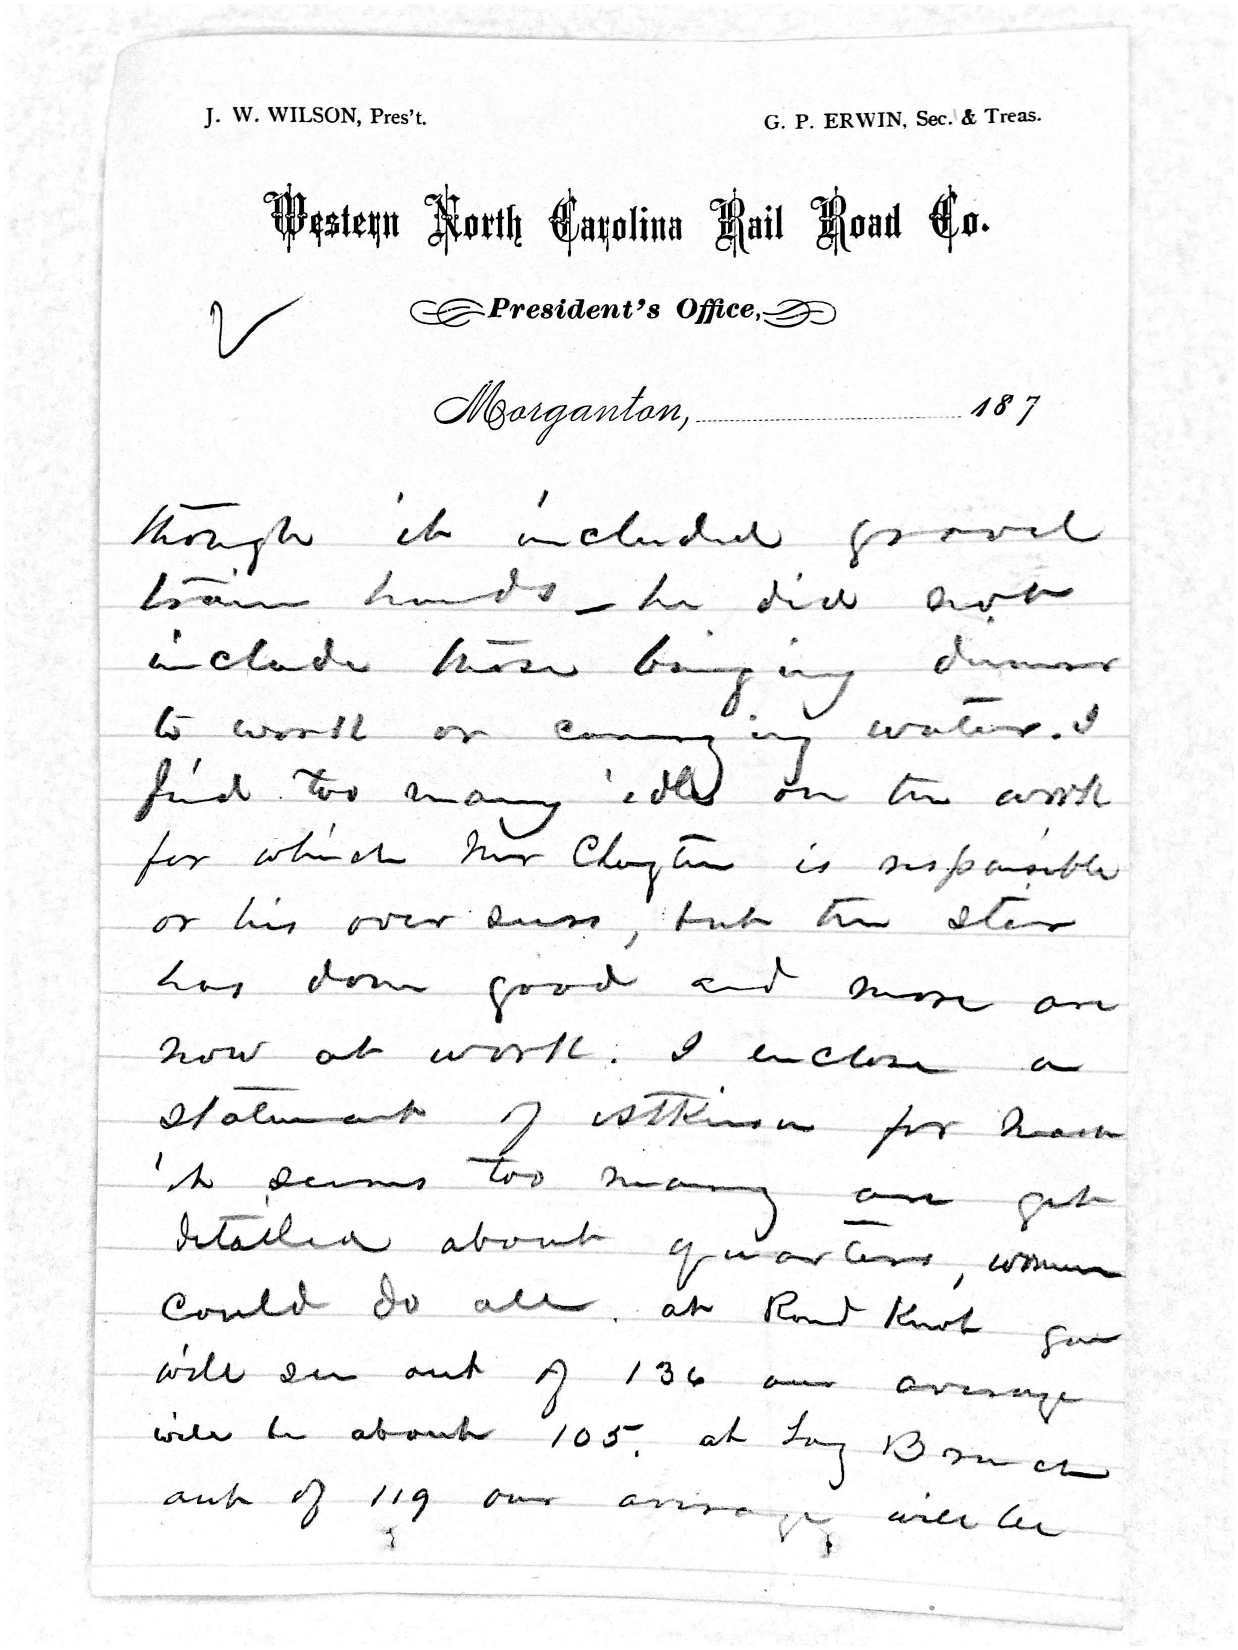 J. W. WILSON, Pres't. G. P. ERWIN, Sec. & Treas.
Western North Carolina Rail Road Co.
President's Office,
Morganton, 187
though it included gravel
train hands — he did not
include those bringing dinner
to work or carrying water. I
find too many idle on the work
for which Mr Clayton is responsible
or his over seers, but the stir
has done good and more are
now at work. I enclose a
statement of Atkinson for
it seems too many are yet
detailed about quarters, women
could do all. at Round Knob you
will see out of 136 our average
will be about 105. at Log Branch
out of 119 our average will be